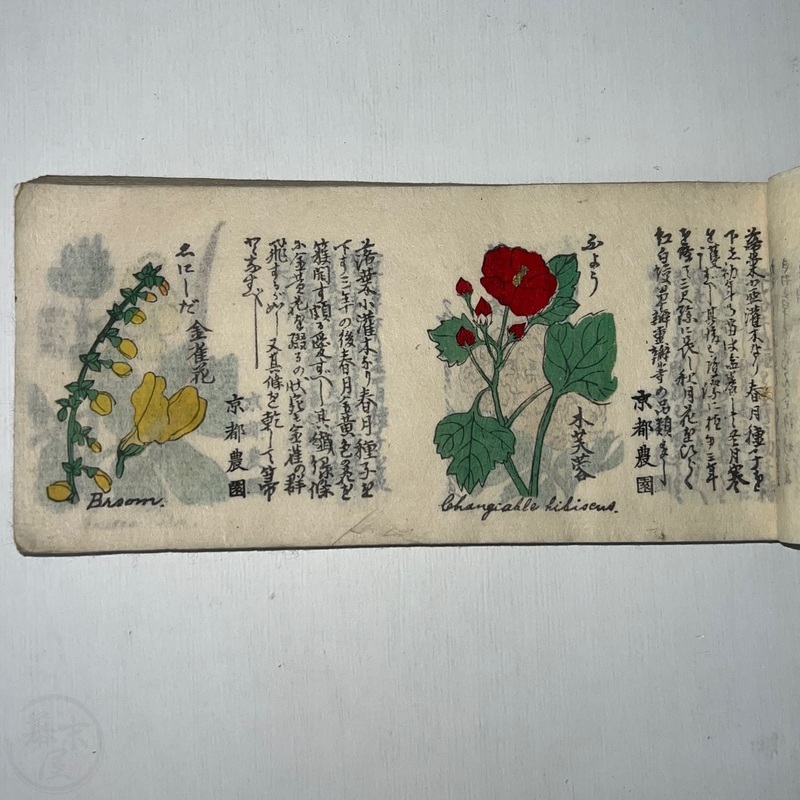 落葉小亜灌木なり 春月種子を
下し初年は盆栽とし冬月寒
を経て三尺餘に長し秋月花をひらく
紅白單瓣重瓣等の品類多し
京都農園
ふよう
木芙蓉
Changiable hibiscus.
落葉小灌木なり 春月種子を
下す三年の後春月黄色花を
簇開す頗る愛すべし其繊條
に金黄花を綴るの状宛も金雀の群
飛するが如し 又其條を乾して箒
となすべし
京都農園
ゑにしだ 金雀花
Broom.